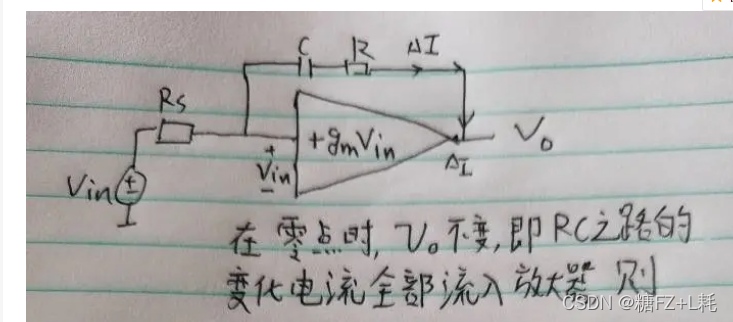 C R ΔI
Rs
+gmVin
Vo
+
Vin
-
ΔI
Vin
在零点时, Vo不变, 即RC之路的
变化电流全部流入放大器 则
CSDN @糖FZ+L耗